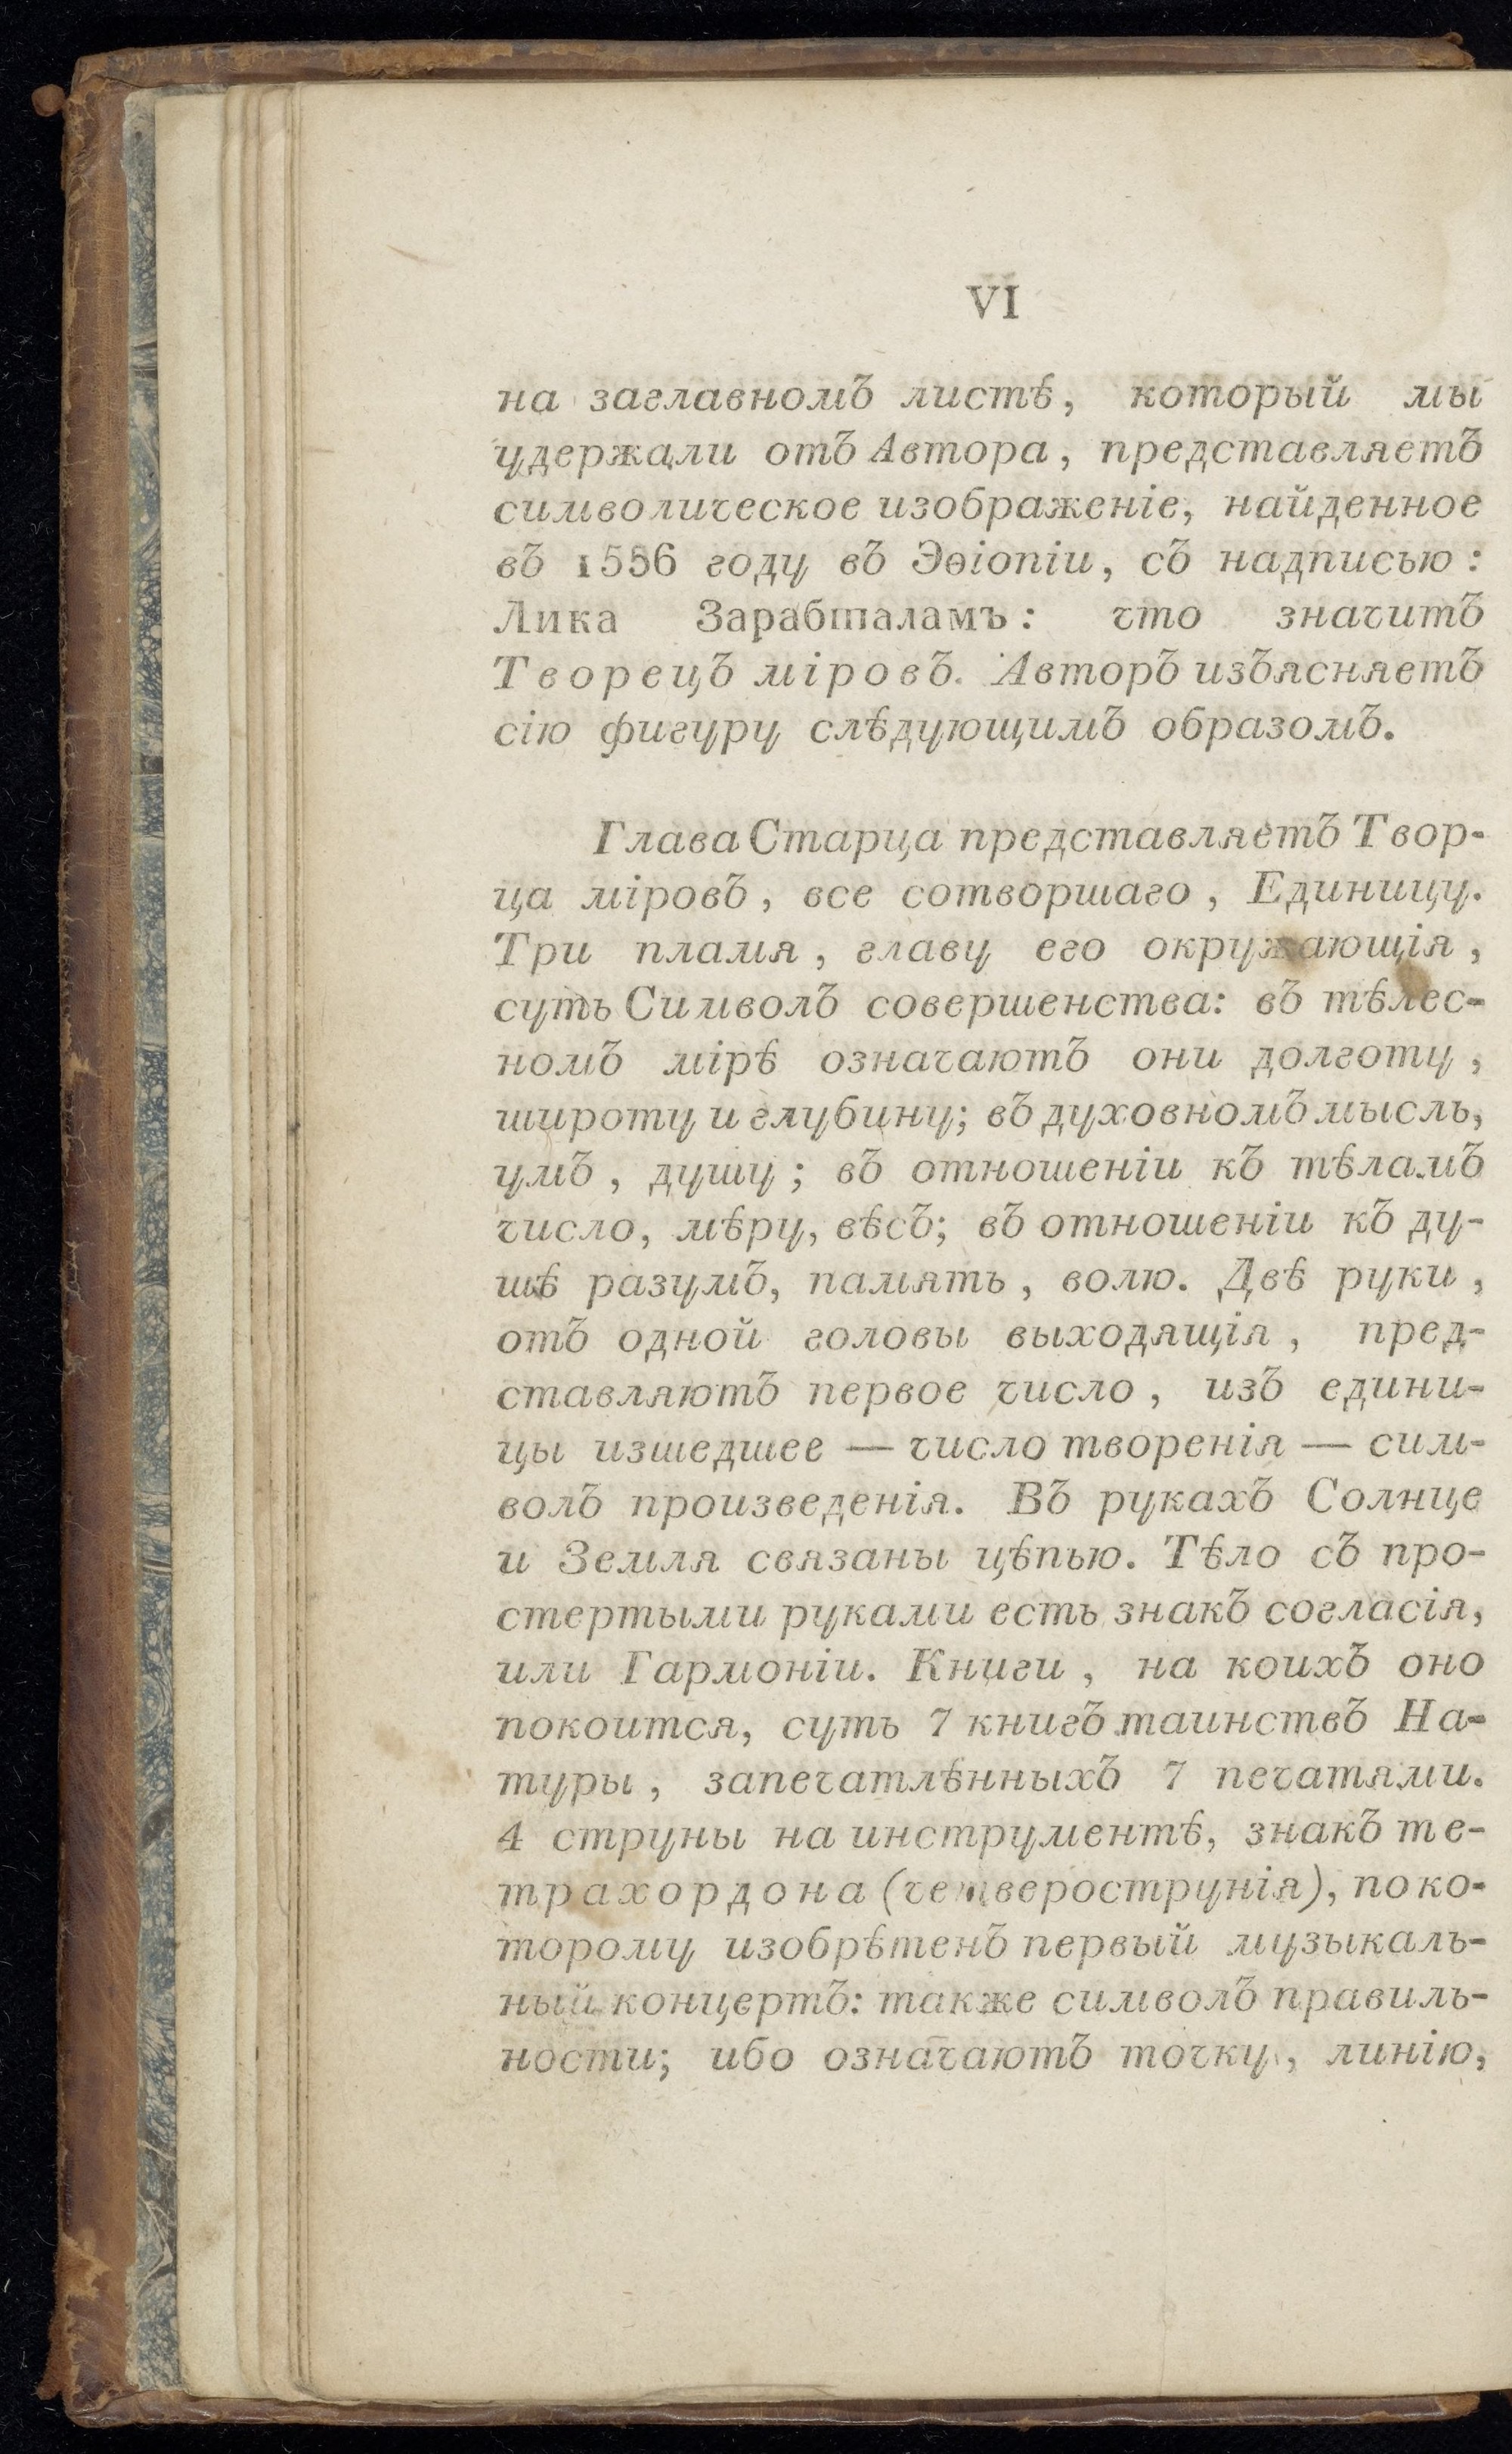 VI
на заглавномъ листѣ, который мы
удержали отъ Автора, представляетъ
символическое изображеніе, найденное
въ 1556 году въ Эѳіопіи, съ надписью:
Лика Зарабшаламъ: что значитъ
Творецъ міровъ. Авторъ изъясняетъ
сію фигуру слѣдующимъ образомъ.
Глава Старца представляетъ Твор-
ца міровъ, все сотворшаго, Единицу.
Три пламя, главу его окружающія,
суть Символъ совершенства: въ тѣлес-
номъ мірѣ означаютъ они долготу,
широту и глубину; въ духовномъ мысль,
умъ, душу; въ отношеніи къ тѣламъ
число, мѣру, вѣсъ; въ отношеніи къ ду-
шѣ разумъ, память, волю. Двѣ руки,
отъ одной головы выходящія, пред-
ставляютъ первое число, изъ едини-
цы изшедшее — число творенія — сим-
волъ произведенія. Въ рукахъ Солнце
и Земля связаны цѣпью. Тѣло съ про-
стертыми руками есть знакъ согласія,
или Гармоніи. Книги, на коихъ оно
покоится, суть 7 книгъ таинствъ На-
туры, запечатлѣнныхъ 7 печатями.
4 струны на инструментѣ, знакъ те-
трахордона (четвероструніл), по ко-
торому изобрѣтенъ первый музыкаль-
ный концертъ: также символъ правиль-
ности; ибо означаютъ точку, линію,